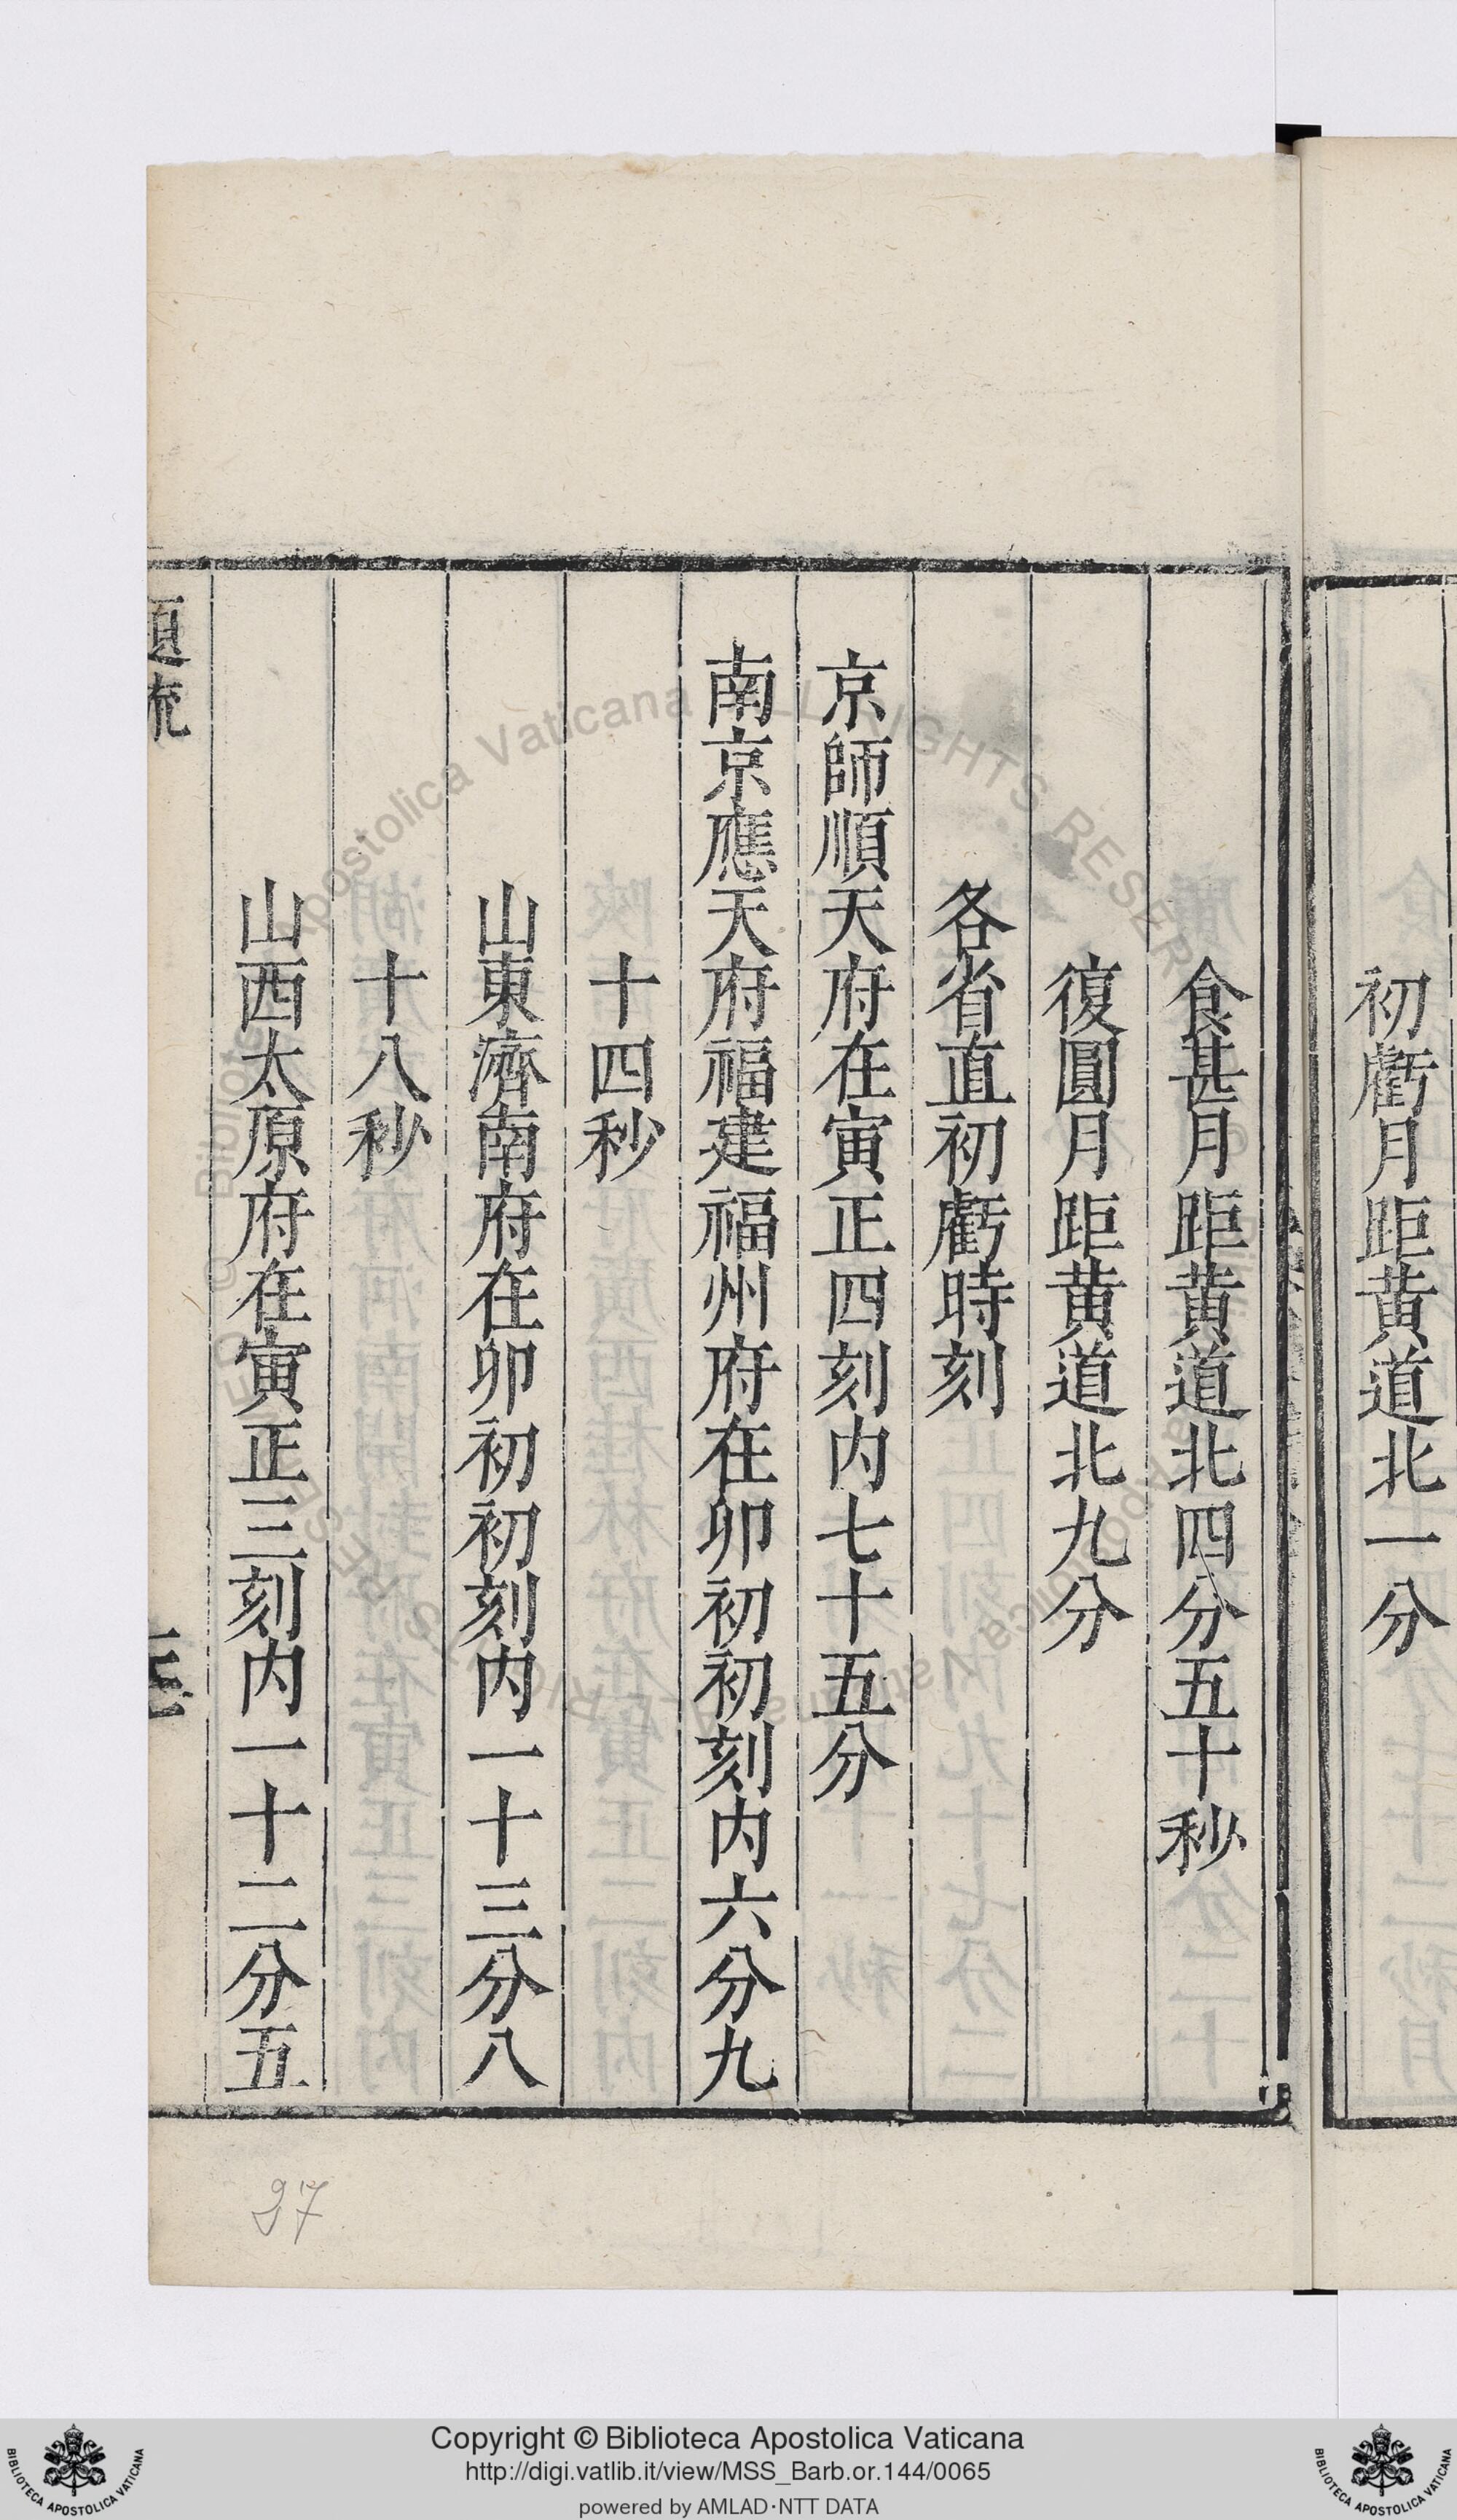 初虧月距黃道北一分
食甚月距黃道北四分五十秒
復圓月距黃道北九分
各省直初虧時刻
京師順天府在寅正四刻内七十五分
南京應天府福建福州府在卯初初刻内六分九
十四秒
山東濟南府在卯初初刻内一十三分八
十八秒
山西太原府在寅正三刻内一十二分五
27
Copyright © Biblioteca Apostolica Vaticana
http://digi.vatlib.it/view/MSS_Barb.or.144/0065
powered by AMLAD·NTT DATA
BIBLIOTECA APOSTOLICA VATICANA
BIBLIOTECA APOSTOLICA VATICANA